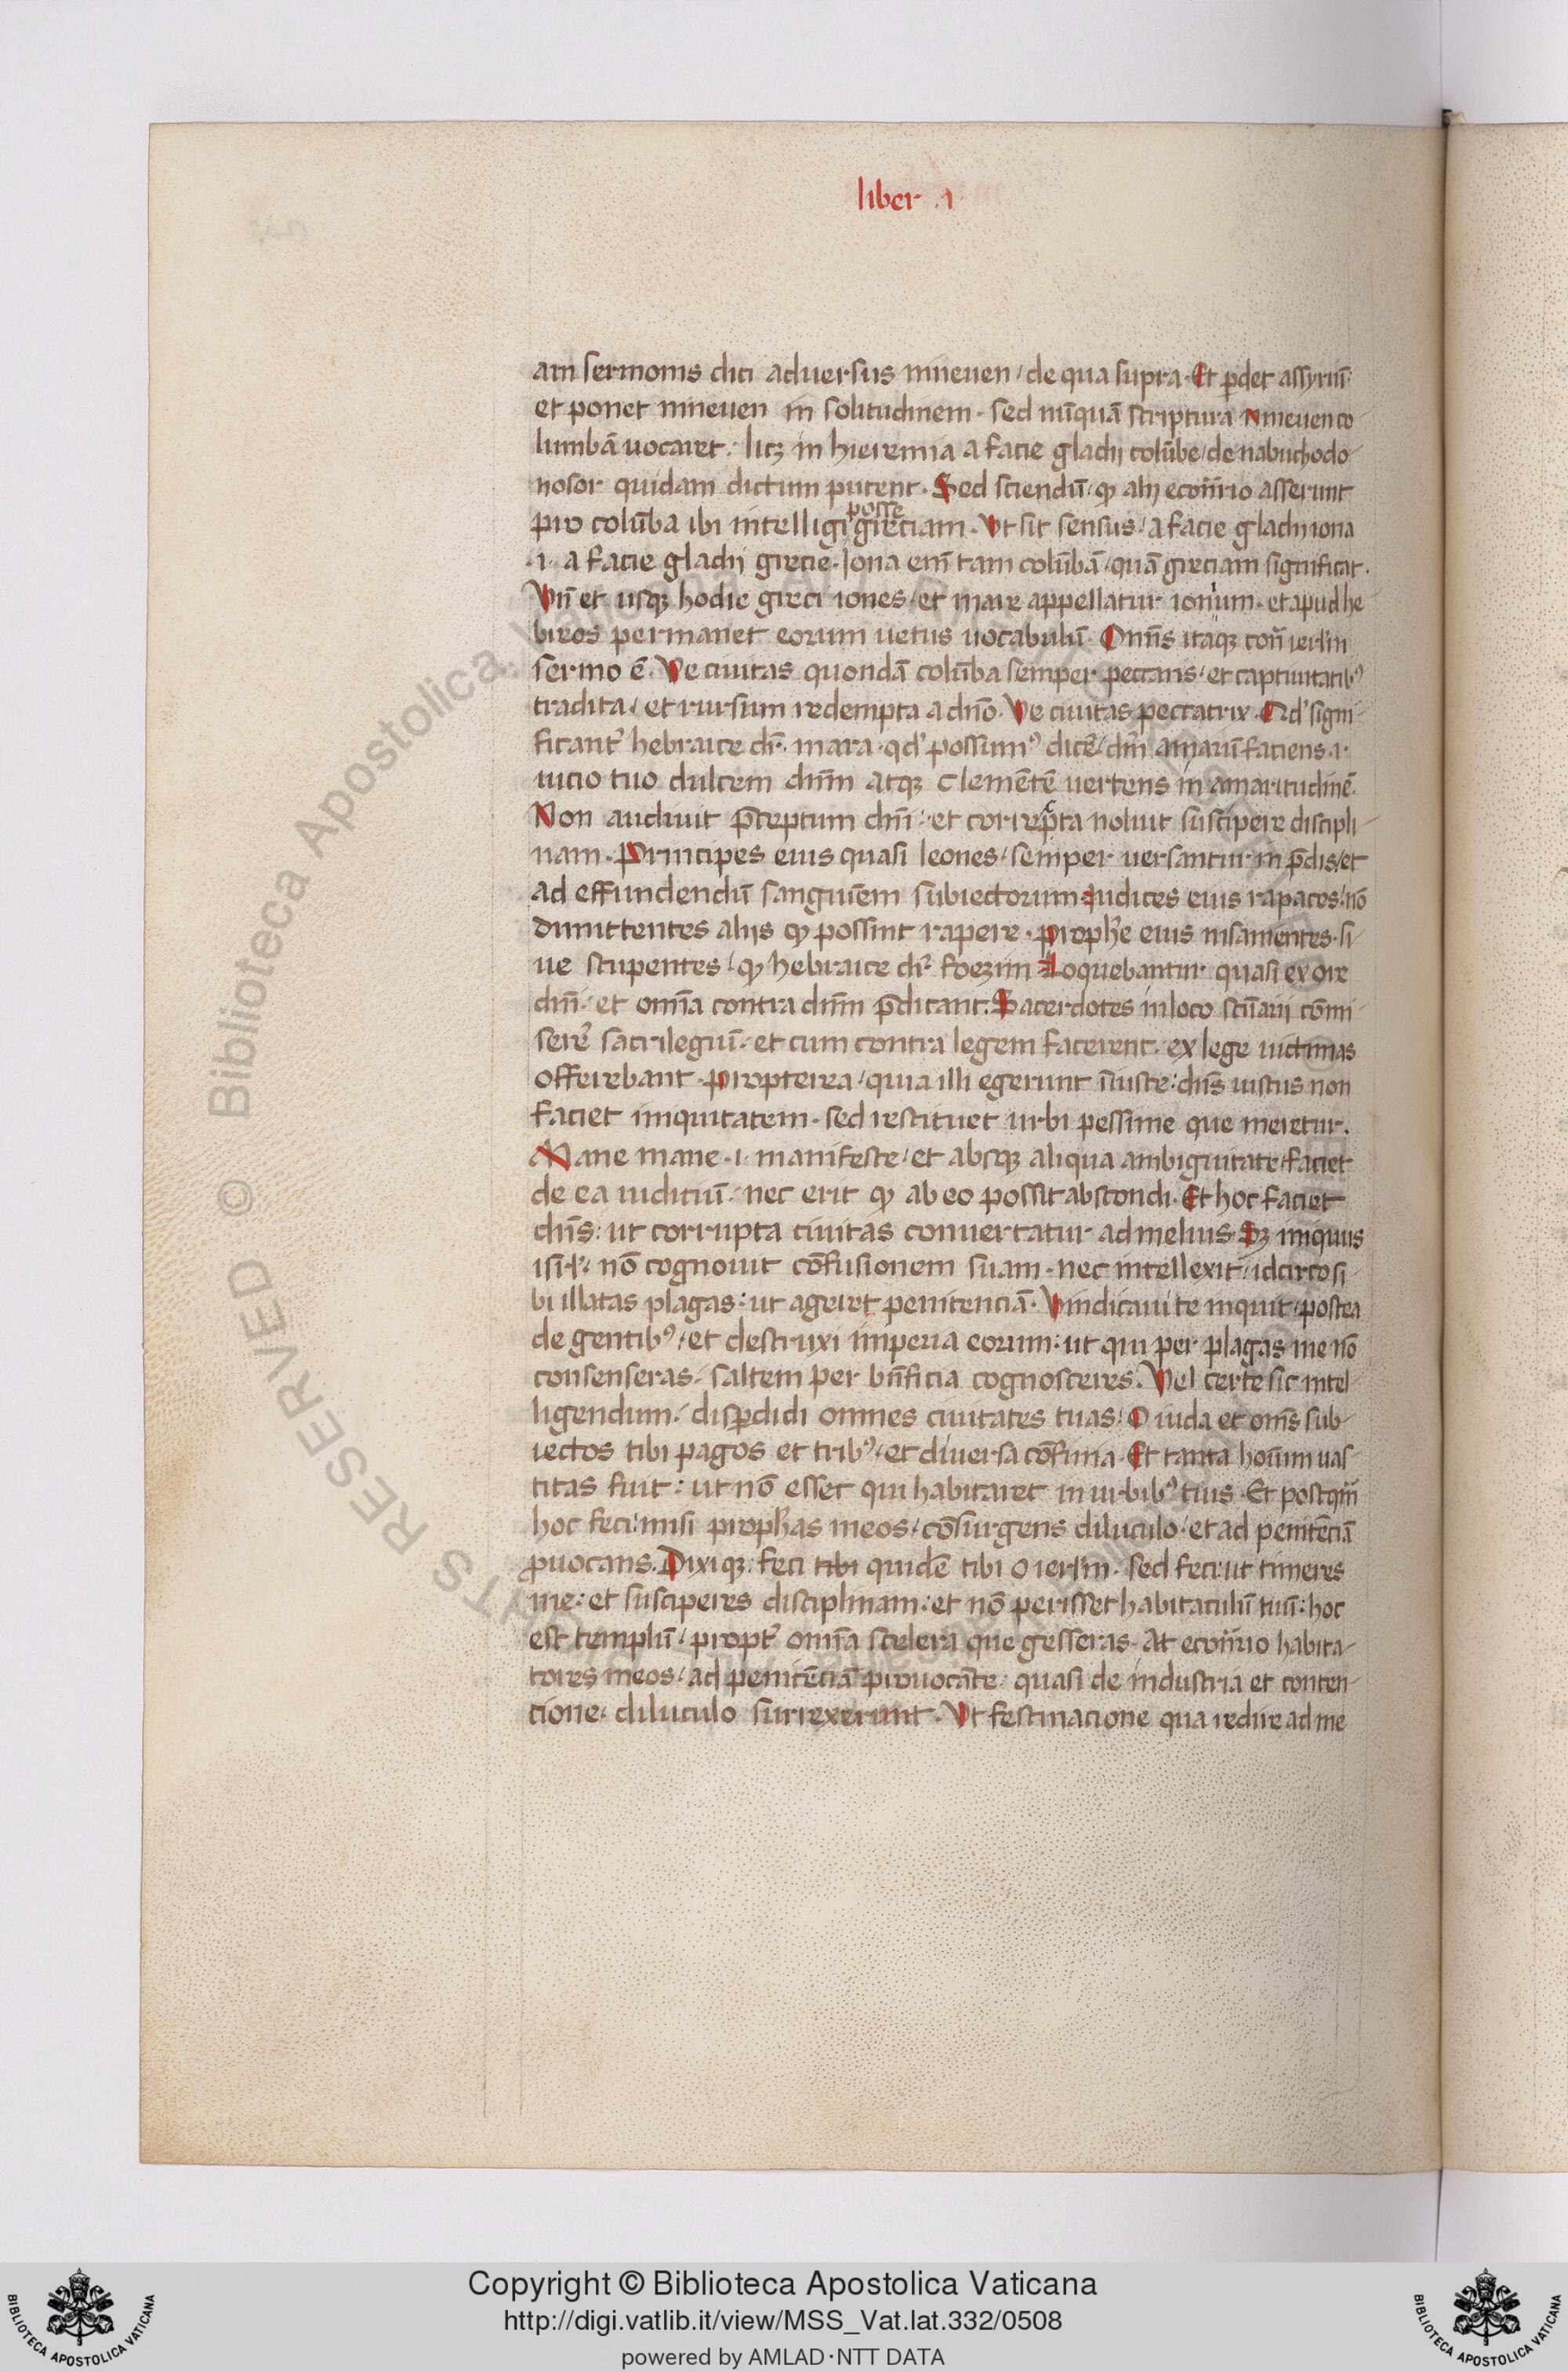 liber .i.
am sermonis dici aduersus niniuen / de qua supra. Et ꝑdet assyriū.
et ponet niniuen in solitudinem. sed nūquā scriptura niniuen co-
lumbā uocaret. licꝫ in hieremia a facie gladij colūbe / de nabuchodo-
nosor quidam dictum putent. Sed sciendū / ꝙ alij econͬrio asserunt
pro colūba ibi intelligi posse greciam. Vt sit sensus / a facie gladij iona
.i. a facie gladij grecie. Iona em̄ tam colūbā / quā greciam significat.
Vn̄ et usqꝫ hodie greci iones / et mare appellatur ionium. et apud he-
breos permanet eorum uetus uocabulū. Omīs itaqꝫ con̄ ierl'm
sermo ē. Ve ciuitas quondā colūba semper peccans / et captiuitatibꝰ
tradita / et rursum redempta a dn̄o. Ve ciuitas peccatrix. Qd' signi-
ficantͬ hebraice dr̄. mara. qd' possumꝰ dicē / dn̄m amarū faciens .i.
uicio tuo dulcem dn̄m atqꝫ clemētē uertens in amaritudinē.
Non audiuit p̄ceptum dn̄i. et correpta noluit suscipere discipli-
nam. Principes eius quasi leones / semper uersantur in p̄dis / et
ad effundendū sanguinem subiectorum. Iudices eius rapaces / nō
dimittentes alijs ꝙ possint rapere. prophe eius insanientes. si-
ue stupentes / ꝙ hebraice dr̄ foezim Loquebantur quasi ex ore
dn̄i. et omīa contra dn̄m p̄dicant. Sacerdotes in loco scūarij cōmi-
serē sacrilegiū. et cum contra legem facerent. ex lege uictimas
offerebant. propterea / quia illi egerunt īiuste: dn̄s iustus non
faciet iniquitatem. sed restituet urbi pessime que meretur.
Mane mane .i. manifeste / et absqꝫ aliqua ambiguitate / faciet
de ea iudiciū. nec erit ꝙ ab eo possit abscondi. Et hoc faciet
dn̄s: ut corrupta ciuitas conuertatur ad melius. Sꝫ iniquus
isr̄l. nō cognouit cōfusionem suam. nec intellexit / idcirco si-
bi illatas plagas: ut ageret penitenciā. Vindicaui te inquit / postea
de gentibꝰ / et destruxi imperia eorum: ut qui per plagas me nō
consenseras / saltem per bn̄ficia cognosceres. Vel certe sic intel-
ligendum. disꝑdidi omnes ciuitates tuas / O iuda et omīs sub-
iectos tibi pagos et tribꝰ / et diuersa cōfinia. Et tanta horum uas-
titas fuit: ut nō esset qui habitaret in urbibꝰ tuis. Et postqm̄
hoc feci: misi prophas meos / cōsurgens diluculo / et ad penitēciā
ꝓuocans. Dixiqꝫ: feci tibi quidē tibi o ierl'm. sed feci: ut timeres
me: et susciperes disciplinam: et nō perisset habitaculū tuū: hoc
est templū / proptͬ omīa scelera que gesseras. At econͬrio habita-
tores meos / ad penitēciā prouocāte / quasi de industria et conten-
cione / diluculo surrexerunt. Vt festinacione qua redire ad me
Copyright © Biblioteca Apostolica Vaticana
http://digi.vatlib.it/view/MSS_Vat.lat.332/0508
powered by AMLAD·NTT DATA
BIBLIOTECA APOSTOLICA VATICANA
BIBLIOTECA APOSTOLICA VATICANA